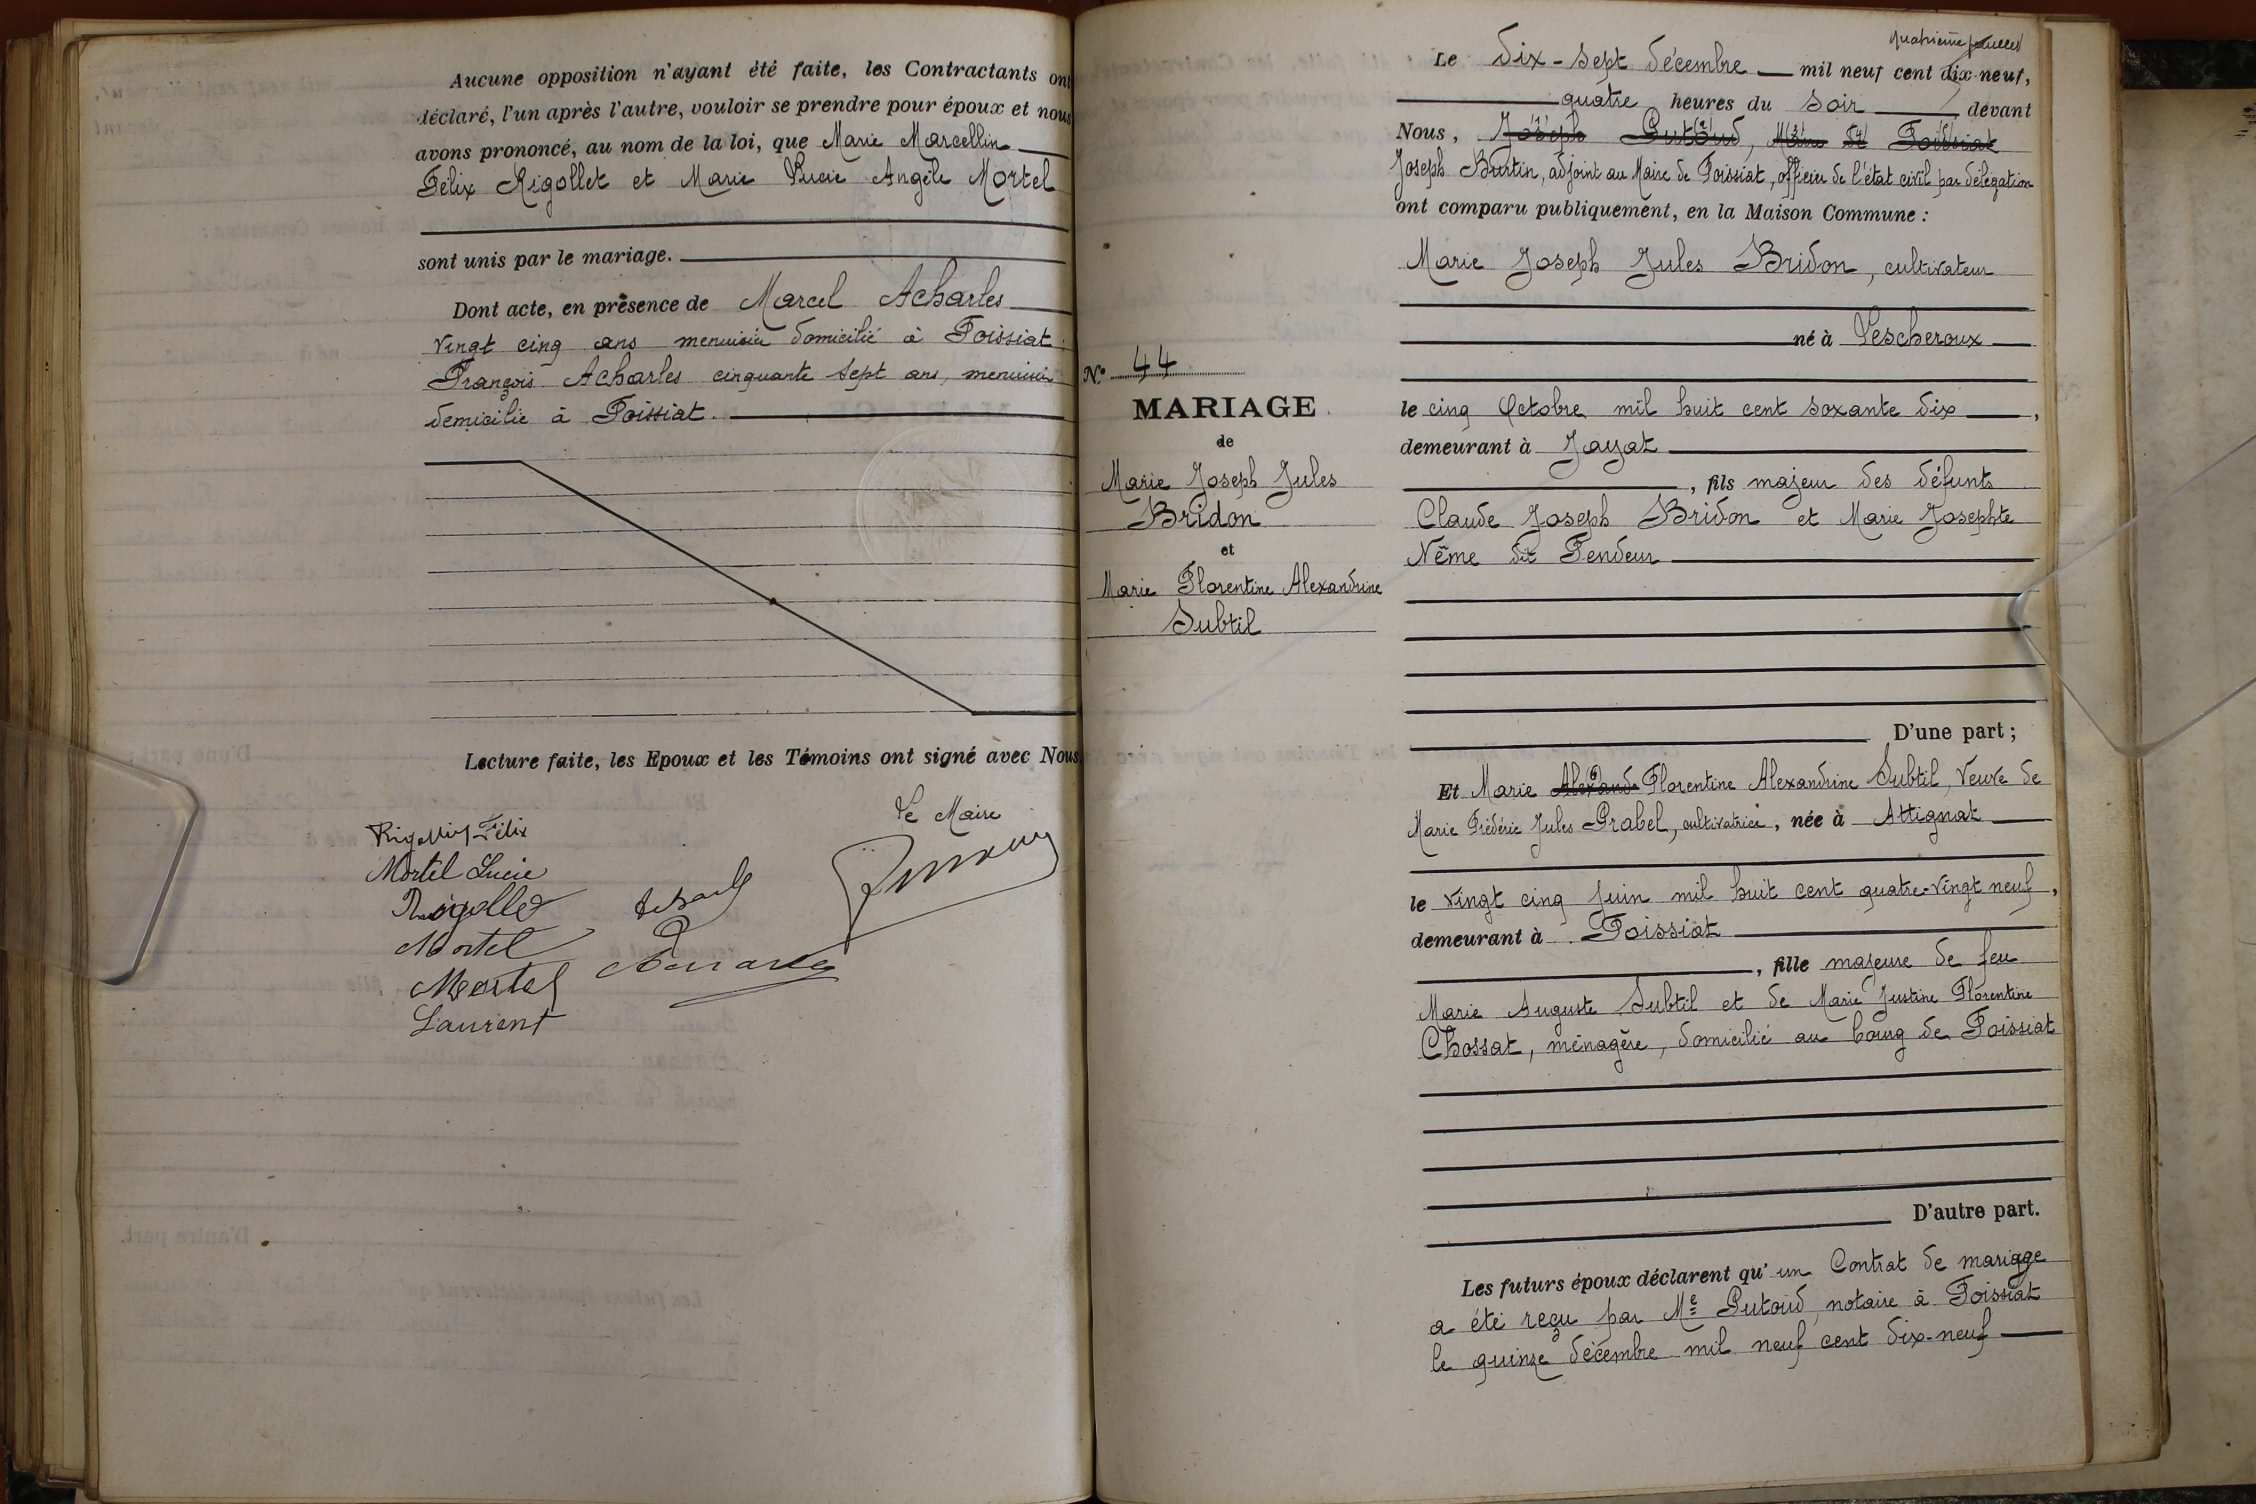 Aucune opposition n'ayant été faite, les Contractants ont
déclaré, l'un après l'autre, vouloir se prendre pour époux et nous
avons prononcé, au nom de la loi, que Marie Marcellin
Félix Rigollet et Marie Lucie Angèle Mortel
sont unis par le mariage.
Dont acte, en présence de Marcel Acharles
vingt cinq ans menuisier domicilié à Foissiat
François Acharles cinquante sept ans, menuisier
domicilié à Foissiat.
Lecture faite, les Epoux et les Témoins ont signé avec Nous
Le Maire
Félix
Mortel Lucie
Rigollet
Mortel
Mortel
Laurent
quatrième feuillet
Le dix-sept décembre mil neuf cent dix-neuf,
quatre heures du soir devant
Nous, Joseph Putoud, Maire de Foissiat
Joseph Burtin, adjoint au Maire de Foissiat, officier de l'état civil par délégation
ont comparu publiquement, en la Maison Commune :
Marie Joseph Jules Bridon, cultivateur
né à Lescheroux
le cinq Octobre mil huit cent soxante dix,
demeurant à Jayat
, fils majeur des défunts
Claude Joseph Bridon et Marie Josephte
Nême dit Fendeur
D'une part ;
N.° 44
MARIAGE
de
Marie Joseph Jules
Bridon
et
Marie Florentine Alexandrine
Subtil
Et Marie Florentine Alexandrine Subtil, veuve de
Marie Frédéric Jules Prabel, cultivatrice, née à Attignat
le vingt cinq juin mil huit cent quatre-vingt neuf,
demeurant à Foissiat
, fille majeure de feu
Marie Auguste Subtil et de Marie Justine Florentine
Chossat, ménagère, domicilié au bourg de Foissiat
D'autre part.
Les futurs époux déclarent qu'un Contrat de mariage
a été reçu par Me Putoud, notaire à Foissiat
le quinze décembre mil neuf cent dix-neuf